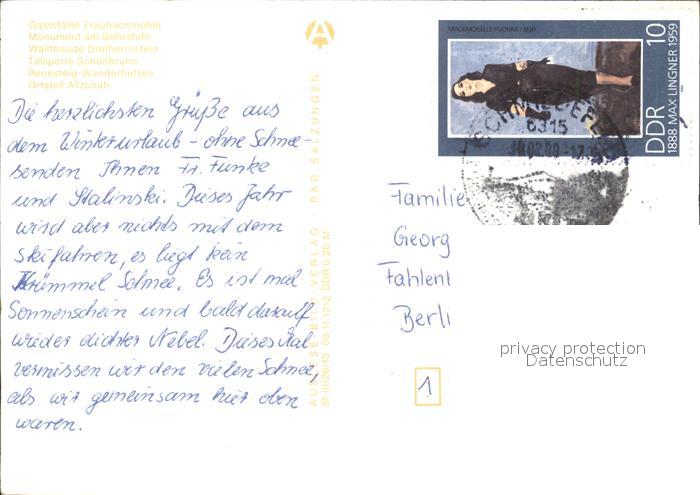 Gaststätte Fraubachmühle
Monument am Bohrstuhl
Waldbaude Dreiherrnstein
Talsperre Schönbrunn
Rennsteig-Wanderhütten
Ortsteil Allzunah
Die herzlichsten Grüße aus
dem Winterurlaub - ohne Schnee -
senden Ihnen Fr. Funke
und Stalinski. Dieses Jahr
wird aber nichts mit dem
Skifahren, es liegt kein
Krümmel Schnee. Es ist mal
Sonnenschein und bald darauf
wieder dichter Nebel. Dieses Mal
vermissen wir den vielen Schnee,
als wir gemeinsam hier oben
waren.
AUSLESE-BILD-VERLAG · BAD SALZUNGEN
St-III/26/13 09 11 1212 DDR 0,20 M
MADEMOISELLE YVONNE / 1939
DDR 10
1888 MAX LINGNER 1959
6315
Familie
Georg
Berli
1
privacy protection
Datenschutz